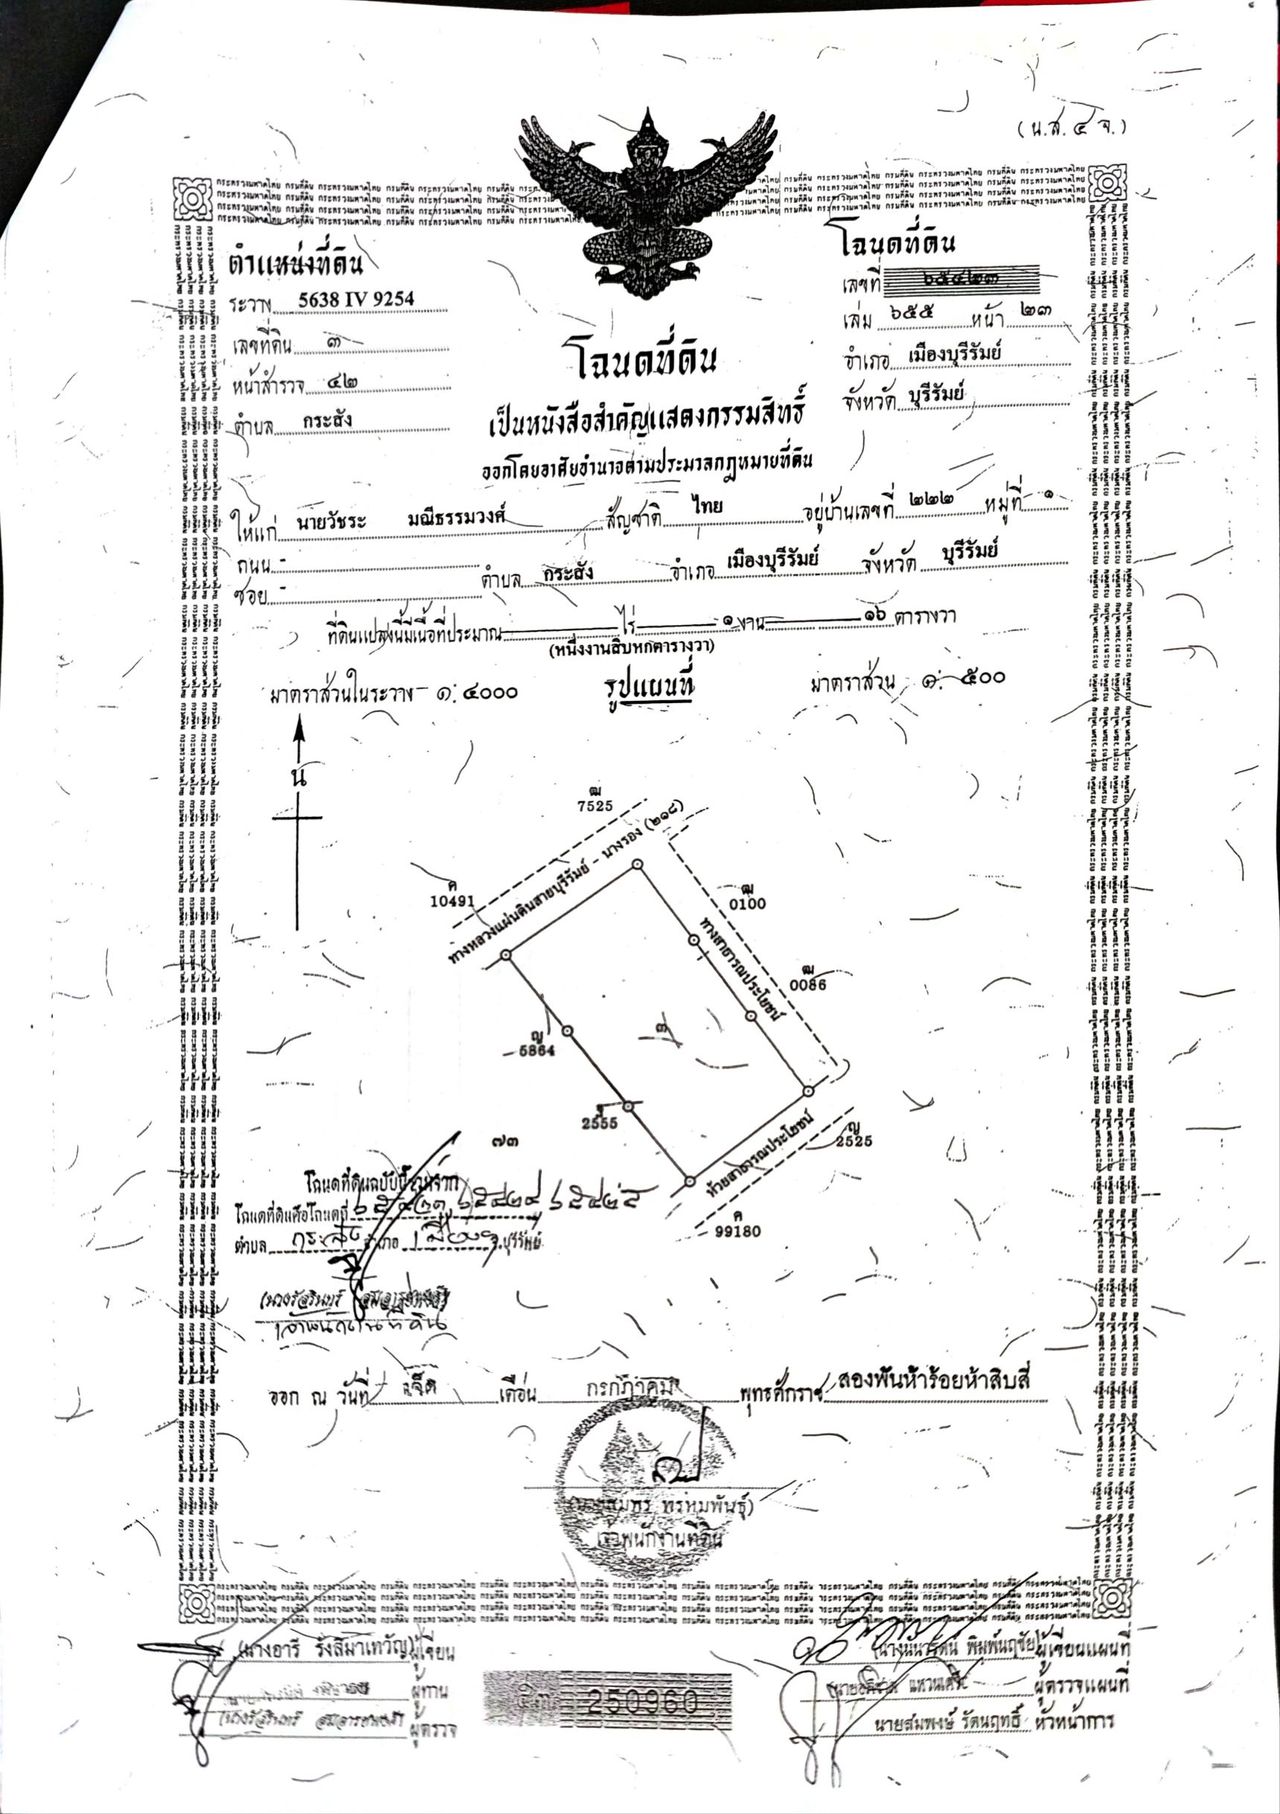 (น.ส. ๔ จ.)
ตำแหน่งที่ดิน
ระวาง 5638 IV 9254
เลขที่ดิน ๓
หน้าสำรวจ ๔๒
ตำบล กระสัง
โฉนดที่ดิน
เลขที่ ๖๕๔๒๓
เล่ม ๖๕๕ หน้า ๒๓
อำเภอ เมืองบุรีรัมย์
จังหวัด บุรีรัมย์
โฉนดที่ดิน
เป็นหนังสือสำคัญแสดงกรรมสิทธิ์
ออกโดยอาศัยอำนาจตามประมวลกฎหมายที่ดิน
ให้แก่ นายวัชระ มณีธรรมวงศ์ สัญชาติ ไทย อยู่บ้านเลขที่ ๒๒๒ หมู่ที่ ๑
ถนน -
ซอย - ตำบล กระสัง อำเภอ เมืองบุรีรัมย์ จังหวัด บุรีรัมย์
ที่ดินแปลงนี้มีเนื้อที่ประมาณ ไร่ ๑ งาน ๑๖ ตารางวา
(หนึ่งงานสิบหกตารางวา)
มาตราส่วนในระวาง ๑:๔๐๐๐ รูปแผนที่ มาตราส่วน ๑:๕๐๐
น
ฒ
7525
ค
10491
ทางหลวงแผ่นดินสายบุรีรัมย์ - นางรอง (๒๑๘)
ฒ
0100
ทางสาธารณประโยชน์
ฒ
0086
๓
ญ
5864
2555
๗๓
ห้วยสาธารณประโยชน์
ญ
2525
ค
99180
โฉนดที่ดินฉบับนี้
โฉนดที่ดินคือโฉนดที่ ๖๕๔๒๓, ๖๕๔๒๔, ๖๕๔๒๕
ตำบล กระสัง อำเภอ เมือง จ.บุรีรัมย์
เจ้าพนักงานที่ดิน
ออก ณ วันที่ เจ็ด เดือน กรกฎาคม พุทธศักราช สองพันห้าร้อยห้าสิบสี่
เจ้าพนักงานที่ดิน
(นางอารี รังสิมาเทวัญ) ผู้เขียน
ผู้ทาน
ผู้ตรวจ
250960
พิมพ์นฤชัย ผู้เขียนแผนที่
ผู้ตรวจแผนที่
นายสมพงษ์ รัตนฤทธิ์ หัวหน้าการ